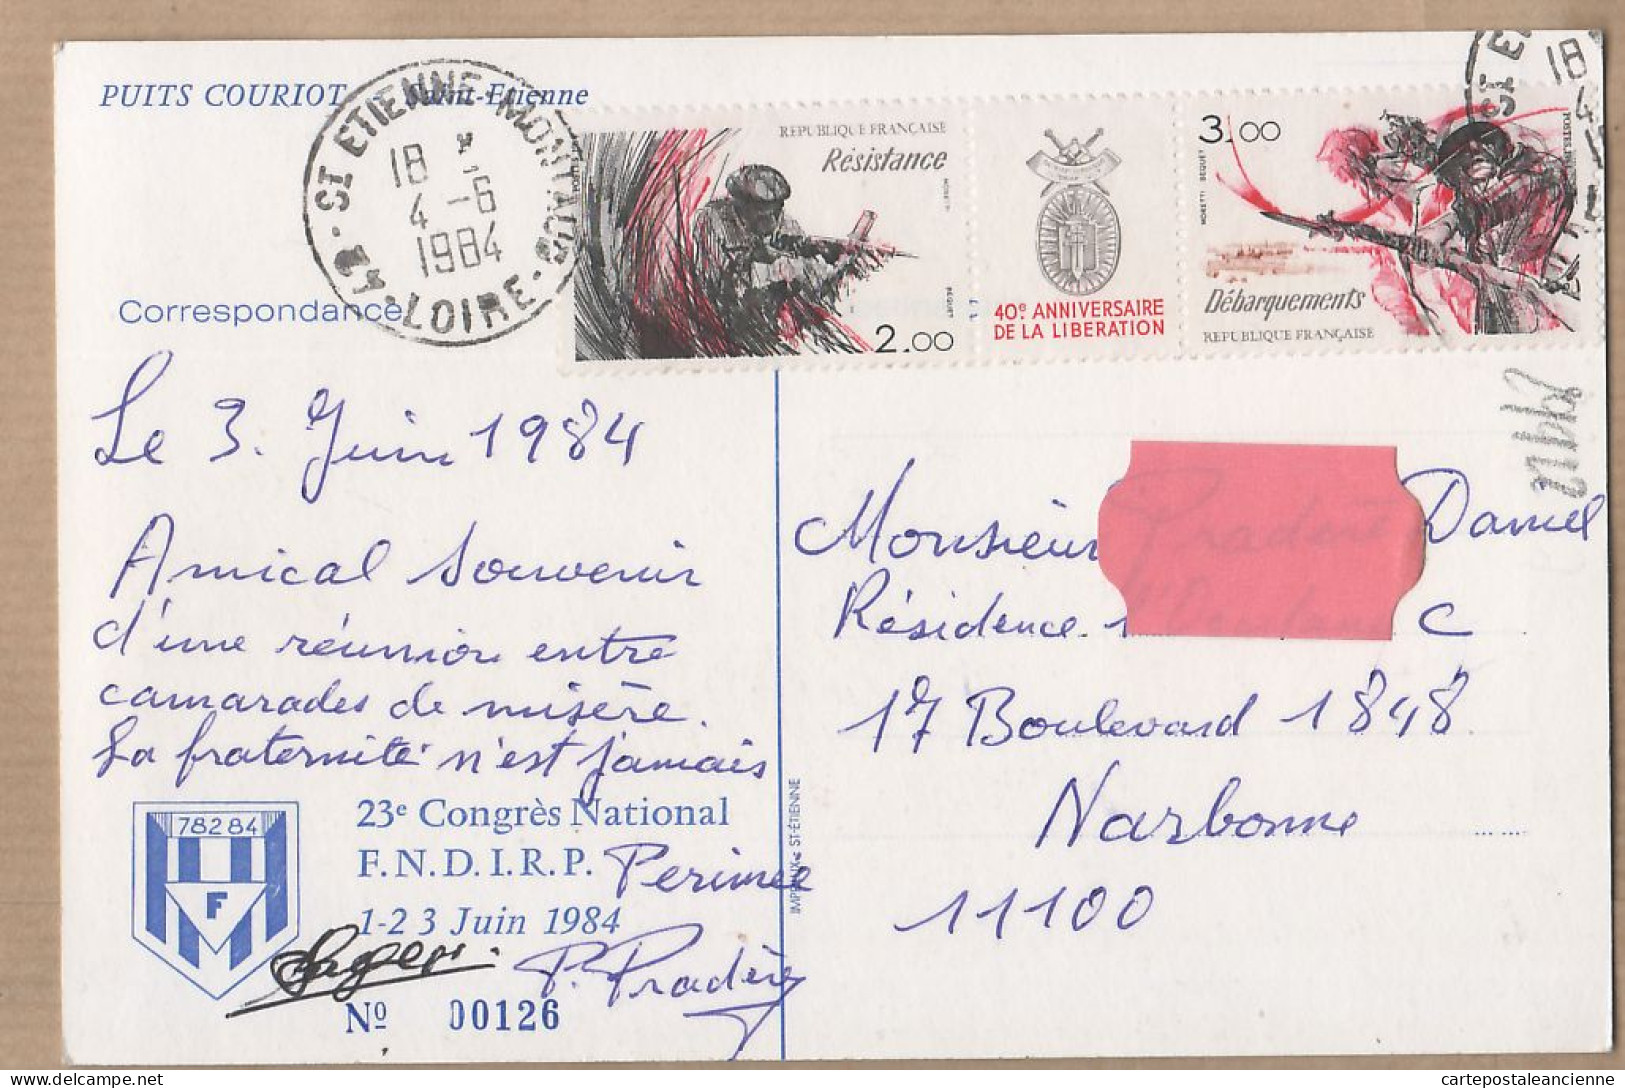 PUITS COURIOT - Saint-Etienne
ST ETIENNE-MONTAUD
18
4-6
1984
LOIRE
REPUBLIQUE FRANÇAISE
Résistance
2.00
40e ANNIVERSAIRE
DE LA LIBERATION
3.00
MORETTI BEQUET
Débarquements
REPUBLIQUE FRANÇAISE
18
Correspondance
Le 3. Juin 1984
Amical souvenir
d'une réunion entre
camarades de misère.
La fraternité n'est jamais
Perimee
P. Pradère
78284
F
23e Congrès National
F.N.D.I.R.P.
1-2 3 Juin 1984
No 00126
ST-ÉTIENNE
Monsieur Daniel
Résidence C
17 Boulevard 1848
Narbonne
11100
cartepostaleancienne
delcampe.net